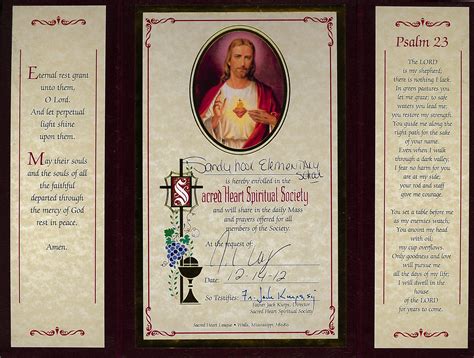 Eternal rest grant
unto them,
O Lord.
And let perpetual
light shine
upon them.
May their souls
and the souls of all
the faithful
departed through
the mercy of God
rest in peace.
Amen.
Sandy Hook Elementary
School
is hereby enrolled in the
Sacred Heart Spiritual Society
and will share in the daily Mass
and prayers offered for all
members of the Society.
At the request of:
Date: 12-14-12
So Testifies: Fr. Jack Kurps, scj
Father Jack Kurps, Director
Sacred Heart Spiritual Society
Sacred Heart League • Walls, Mississippi 38686
Psalm 23
The LORD
is my shepherd;
there is nothing I lack.
In green pastures you
let me graze; to safe
waters you lead me;
you restore my strength.
You guide me along the
right path for the sake
of your name.
Even when I walk
through a dark valley,
I fear no harm for you
are at my side;
your rod and staff
give me courage.
You set a table before me
as my enemies watch;
You anoint my head
with oil;
my cup overflows.
Only goodness and love
will pursue me
all the days of my life;
I will dwell in the
house of the LORD
for years to come.